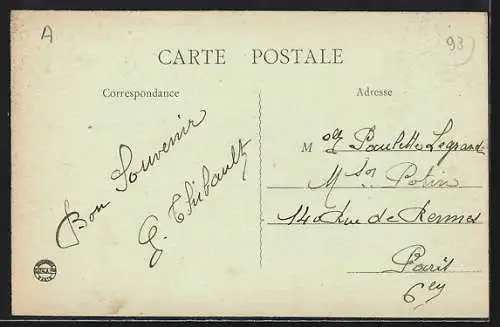 A
93
CARTE POSTALE
Correspondance
Adresse
Bon Souvenir
G. Thibault
Melle Paulette Legrand
Mson Potin
140 Rue de Rennes
Paris
6em